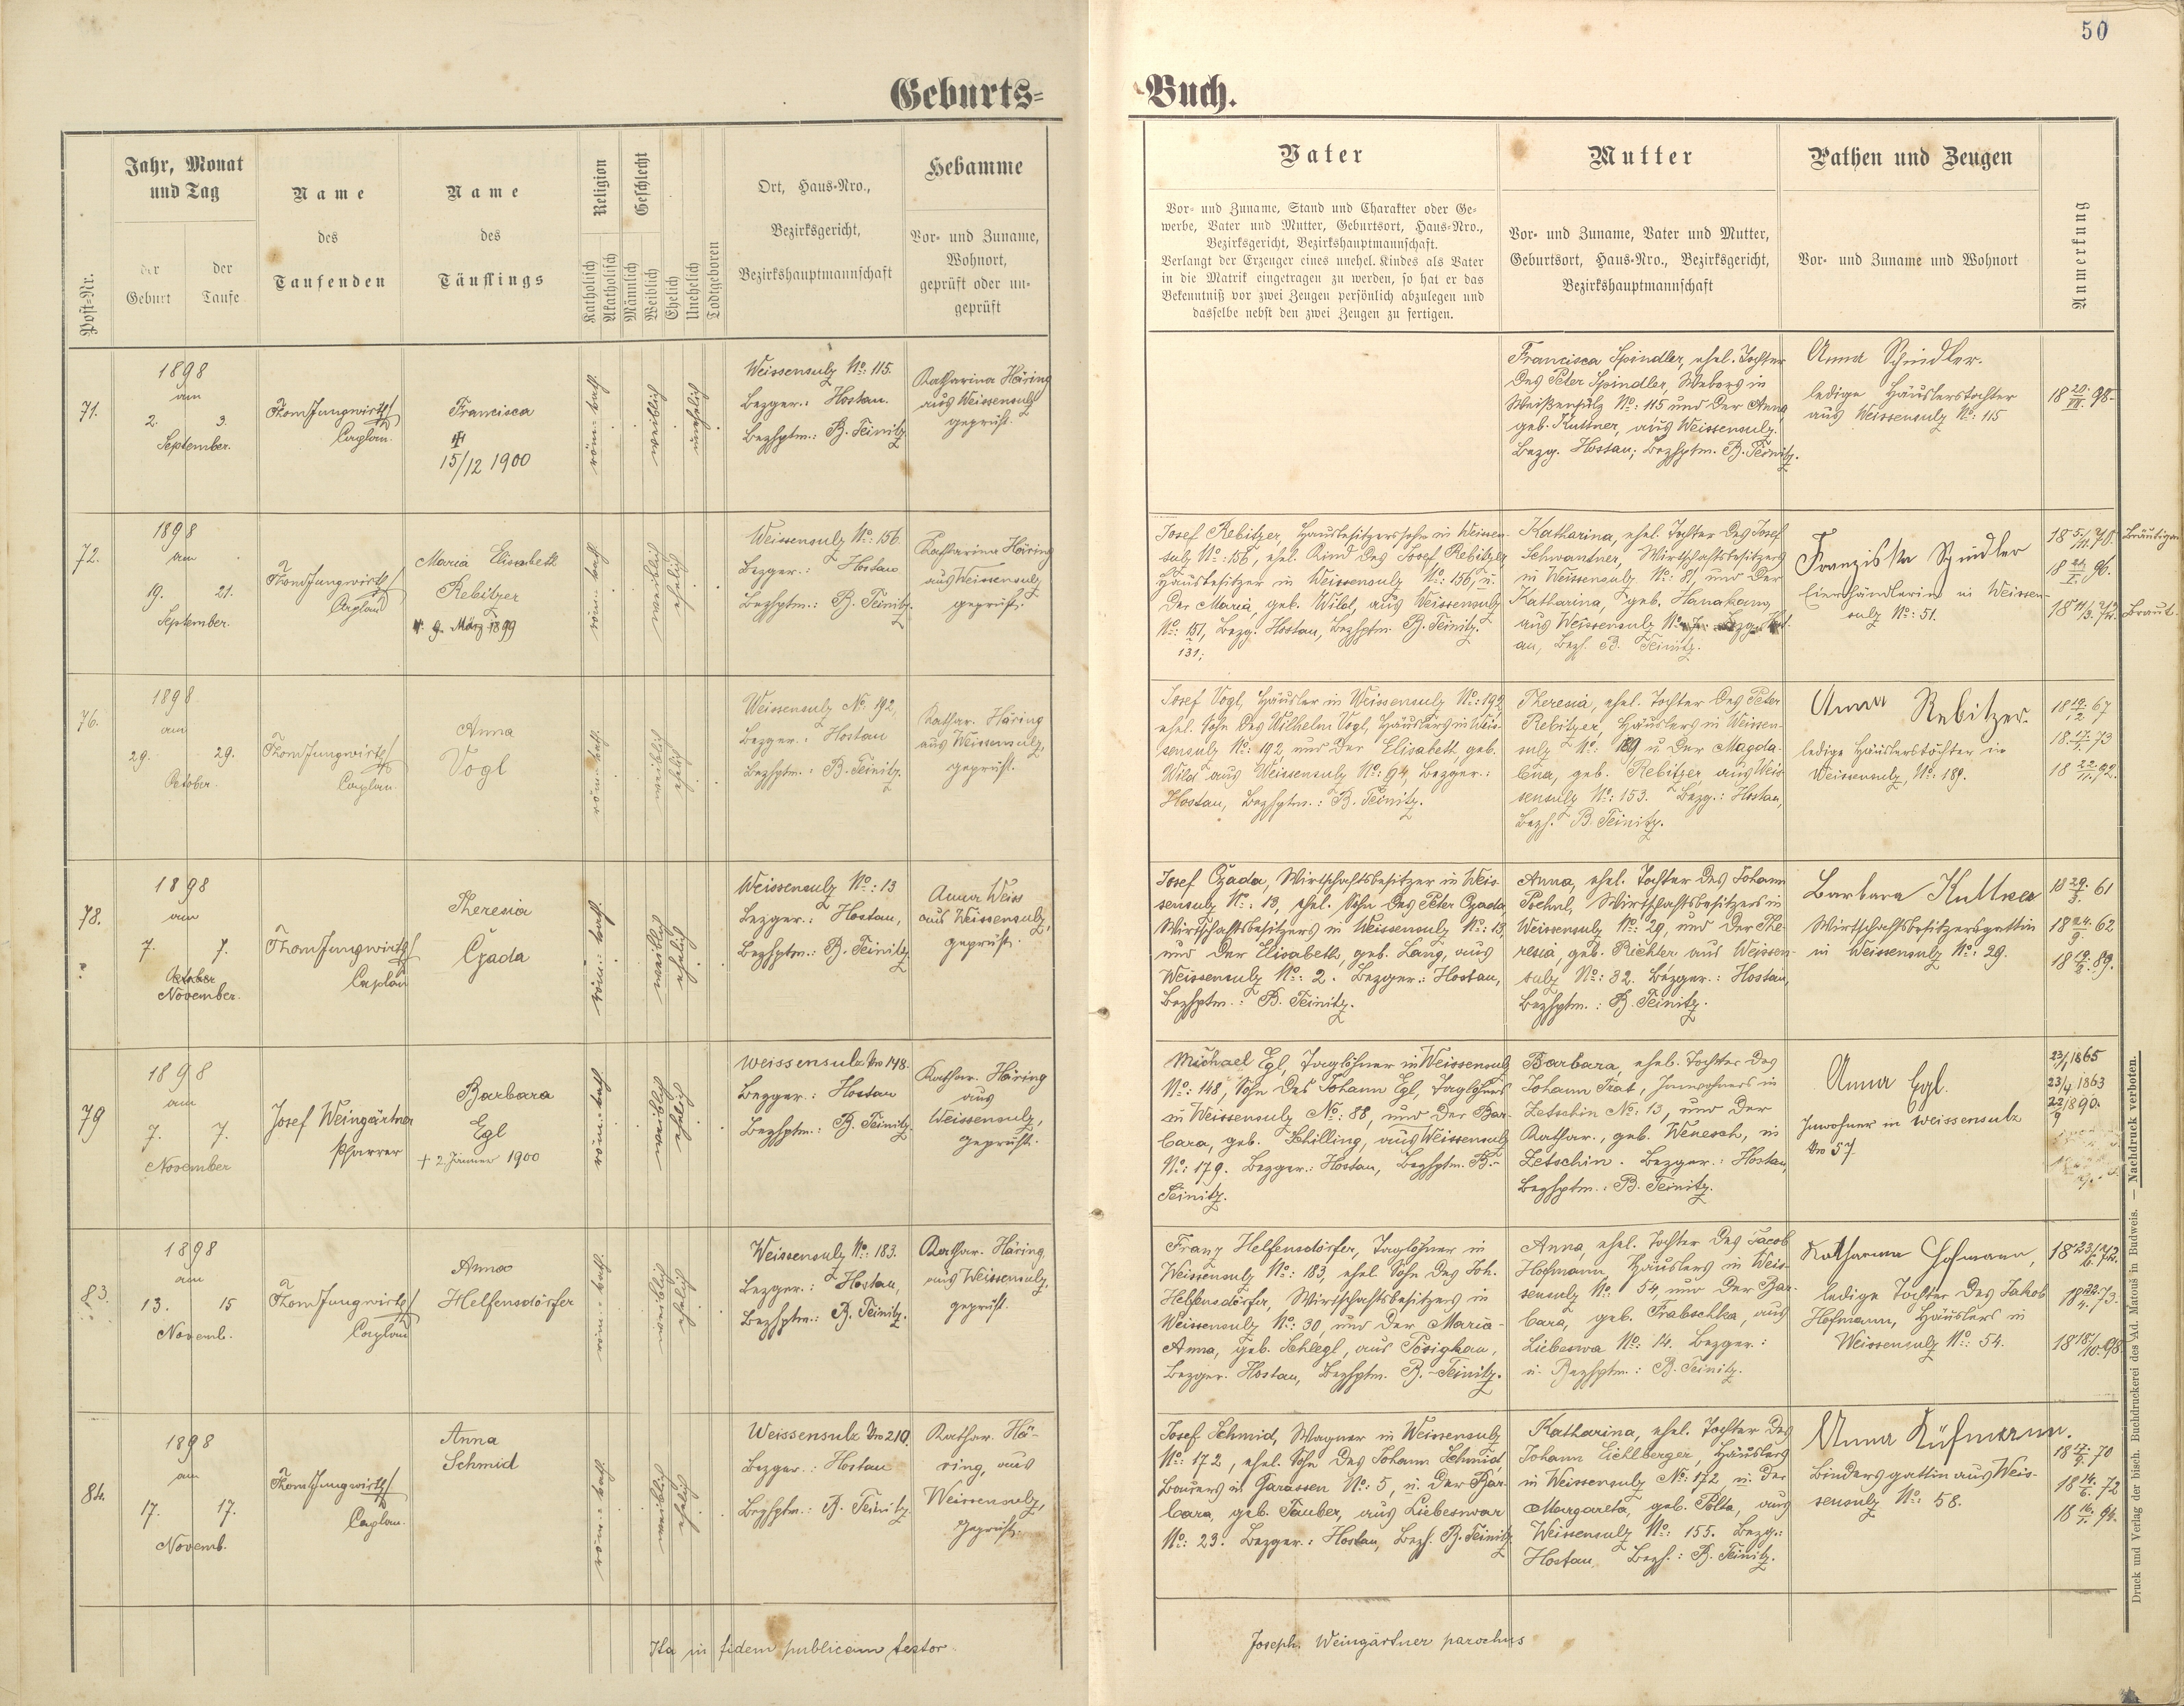 50
Geburts-
Buch.
Post-Nr.
Jahr, Monat
und Tag
der
Geburt
der
Taufe
Name
des
Taufenden
Name
des
Täuflings
Religion
Katholisch
Akatholisch
Geschlecht
Männlich
Weiblich
Ehelich
Unehelich
Todtgeboren
Ort, Haus-Nro.,
Bezirksgericht,
Bezirkshauptmannschaft
Hebamme
Vor- und Zuname,
Wohnort,
geprüft oder un-
geprüft
Vater
Vor- und Zuname, Stand und Charakter oder Ge-
werbe, Vater und Mutter, Geburtsort, Haus-Nro.,
Bezirksgericht, Bezirkshauptmannschaft.
Verlangt der Erzeuger eines unehel. Kindes als Vater
in die Matrik eingetragen zu werden, so hat er das
Bekenntniß vor zwei Zeugen persönlich abzulegen und
dasselbe nebst den zwei Zeugen zu fertigen.
Mutter
Vor- und Zuname, Vater und Mutter,
Geburtsort, Haus-Nro., Bezirksgericht,
Bezirkshauptmannschaft
Pathen und Zeugen
Vor- und Zuname und Wohnort
Anmerkung
71.
1898
am
2. 3.
September.
Thom Jungwirth
Caplan.
Francisca
15/12 1900
röm: kath.
weiblich
unehelich
Weissensulz No: 115.
Bezger.: Hostau.
Bezhptm.: B. Teinitz
Katharina Häring
aus Weissensulz
geprüft.
Francisca Spindler, ehel. Tochter
des Peter Spindler, Webers in
Weißensulz No: 115 und der Anna
geb. Kuttner, aus Weissensulz.
Bezg. Hostau; Bezhptm. B. Teinitz.
Anna Spindler.
ledige Häuslerstochter
aus Weissensulz No: 115
72.
1898
am
19. 21.
September.
Thom Jungwirth
Caplan
Maria Elisabeth
Rebitzer
9. März 1899
röm: kath
weiblich
ehelich
Weissensulz No: 156
Bezger.: Hostau
Bezhptm.: B. Teinitz.
Katharina Häring
aus Weissensulz
geprüft.
Josef Rebitzer, Hausbesitzerssohn in Weissen-
sulz No: 156, ehel. Kind des Josef Rebitzer
Hausbesitzer in Weissensulz No: 156, u.
der Maria, geb. Wild, aus Weissensulz
No: 151, Bezg. Hostau, Bezhptm. B. Teinitz.
131;
Katharina, ehel. Tochter des Josef
Schwantner, Wirtschaftsbesitzers
in Weissensulz No: 81, und der
Katharina, geb.
aus Weissensulz
au, Bezh. B. Teinitz.
Franziska Spindler
Eierhändlerin in Weissen-
sulz No: 51.
Bräutigam
Braut.
76.
1898
am
29. 29.
October.
Thom Jungwirth
Caplan.
Anna
Vogl
röm: kath.
weiblich
ehelich
Weissensulz No. 192,
Bezger.: Hostau
Bezhptm.: B. Teinitz.
Kathar. Häring
aus Weissensulz,
geprüft.
Josef Vogl, Häusler in Weissensulz No: 192
ehel. Sohn des Wilhelm Vogl, Häuslers in Weis-
sensulz No: 192, und der Elisabeth, geb.
Wild aus Weissensulz No: 94, Bezger.:
Hostau, Bezhptm.: B. Teinitz.
Theresia, ehel. Tochter des Peter
Rebitzer, Häuslers in Weissen-
sulz No: 189 u der Magda-
lena, geb. Rebitzer, aus Weis
sensulz No: 153. Bezg.: Hostau,
Bezh. B. Teinitz.
Anna Rebitzer.
ledige Häuslerstochter in
Weissensulz, No: 189.
78.
1898
am
7. 7.
October
November.
Thom Jungwirth
Caplan
Theresia
Czada
röm: kath.
weiblich
ehelich
Weissensulz No: 13
Bezger.: Hostau,
Bezhptm.: B. Teinitz
Anna Weiss
aus Weissensulz,
geprüft.
Josef Czada, Wirtschaftsbesitzer in Weis-
sensulz No: 13, ehel. Sohn des Peter Czada,
Wirtschaftsbesitzers in Weissensulz No: 13,
und der Elisabeth, geb. Lang, aus
Weissensulz No: 2. Bezger.: Hostau,
Bezhptm.: B. Teinitz.
Anna, ehel. Tochter des Johann
Wirtschaftsbesitzers in
Weissensulz No: 29, und der The-
resia, geb. Richter aus Weissen-
sulz No: 82. Bezger.: Hostau,
Bezhptm.: B. Teinitz.
Barbara Kuttner
Wirtschaftsbesitzersgattin
in Weissensulz No: 29.
79
1898
am
7. 7.
November
Josef Weingärtner
Pfarrer
Barbara
Egl
+ 2. Jänner 1900
röm: kath
weiblich
ehelich
Weissensulz Nro 148.
Bezger.: Hostau
Bezhptm.: B. Teinitz.
Kathar. Häring
aus
Weissensulz,
geprüft.
Michael Egl, Taglöhner in Weissensulz
No: 148, Sohn des Johann Egl, Taglöhners
in Weissensulz No: 88, und der Bar-
bara, geb. Schilling, aus Weissensulz
No: 179. Bezger.: Hostau, Bezhptm. B.-
Teinitz.
Barbara, ehel. Tochter des
Johann Inwohners in
Zetschin No: 13, und der
Kathar., geb. in
Zetschin. Bezger.: Hostau,
Bezhptm.: B. Teinitz.
Anna Egl.
Inwohner in Weissensulz
Nro 57.
23/1 1865
23/4 1863
83.
1898
am
13. 15
Novemb.
Thom Jungwirth
Caplan
Anna
Helfensdörfer
röm: kath.
weiblich
ehelich
Weissensulz No: 183.
Bezger.: Hostau,
Bezhptm.: B. Teinitz.
Kathar. Häring,
aus Weissensulz,
geprüft.
Franz Helfensdörfer, Taglöhner in
Weissensulz No: 183, ehel. Sohn des Joh.
Helfensdörfer, Wirtschaftsbesitzers in
Weissensulz No: 30, und der Maria-
Anna, geb. Schlegl, aus
Bezger. Hostau, Bezhptm. B.-Teinitz.
Anna, ehel. Tochter des Jacob
Hofmann Häuslers in Weis-
sensulz No. 54, und der Bar-
bara, geb. Prabschka, aus
Liebeswa No: 14. Bezger.:
u. Bezhptm.: B. Teinitz.
Katharina Hofmann,
ledige Tochter des Jakob
Hofmann, Häuslers in
Weissensulz No: 54.
84.
1898
am
17. 17.
Novemb.
Thom Jungwirth
Caplan.
Anna
Schmid
röm: kath.
weiblich
ehelich
Weissensulz Nro 210.
Bezger.: Hostau
Bezhptm.: B. Teinitz.
Kathar. Hä-
ring, aus
Weissensulz,
geprüft.
Josef Schmid, Wagner in Weissensulz
No: 172, ehel. Sohn des Johann Schmid,
Bauers in Garassen No: 5, u. der Bar-
bara, geb. Tauber, aus Liebeswar
No: 23. Bezger.: Hostau, Bezh. B. Teinitz
Katharina, ehel. Tochter des
Johann Eichlberger, Häuslers
in Weissensulz No: 172, u. der
Margareta, geb. Polta, aus
Weissensulz No: 155. Bezg.:
Hostau, Bezh.: B. Teinitz.
Anna
Bindersgattin aus Weis-
sensulz No: 58.
Ita in fidem publicam testor
Joseph. Weingärtner parochus
Druck und Verlag der bisch. Buchdruckerei des Ad. Matouš in Budweis. — Nachdruck verboten.